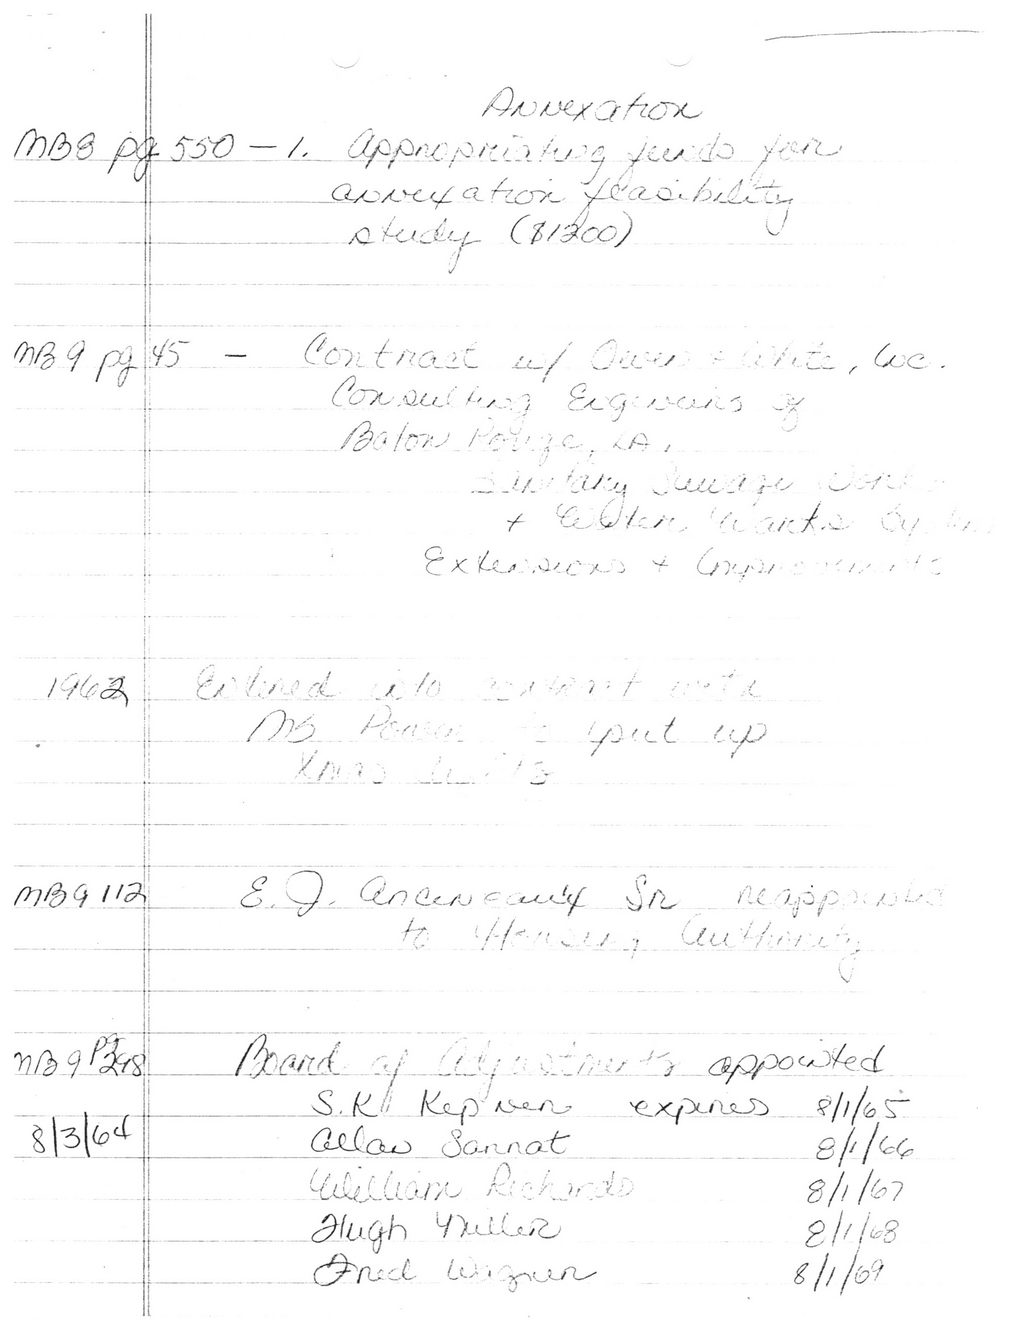 Annexation
MB8 pg 550 - 1. Appropriating funds for
annexation feasibility
study ($1200)
MB 9 pg 45 - Contract w/ Owen + White, Inc.
Consulting Engineers of
Baton Rouge, LA.
Sanitary Sewage Works
+ Water Works System
Extensions + Improvements
1962 Entered into contract with
MS Power to put up
Xmas lights
MB 9 112 E. J. Arceneaux Sr reappointed
to Housing Authority
MB 9 pg 298 Board of Adjustments appointed
S.K. Kepner expires 8/1/65
8/3/64 Allan Sannat 8/1/66
William Richards 8/1/67
Hugh Miller 8/1/68
Fred Wagner 8/1/69